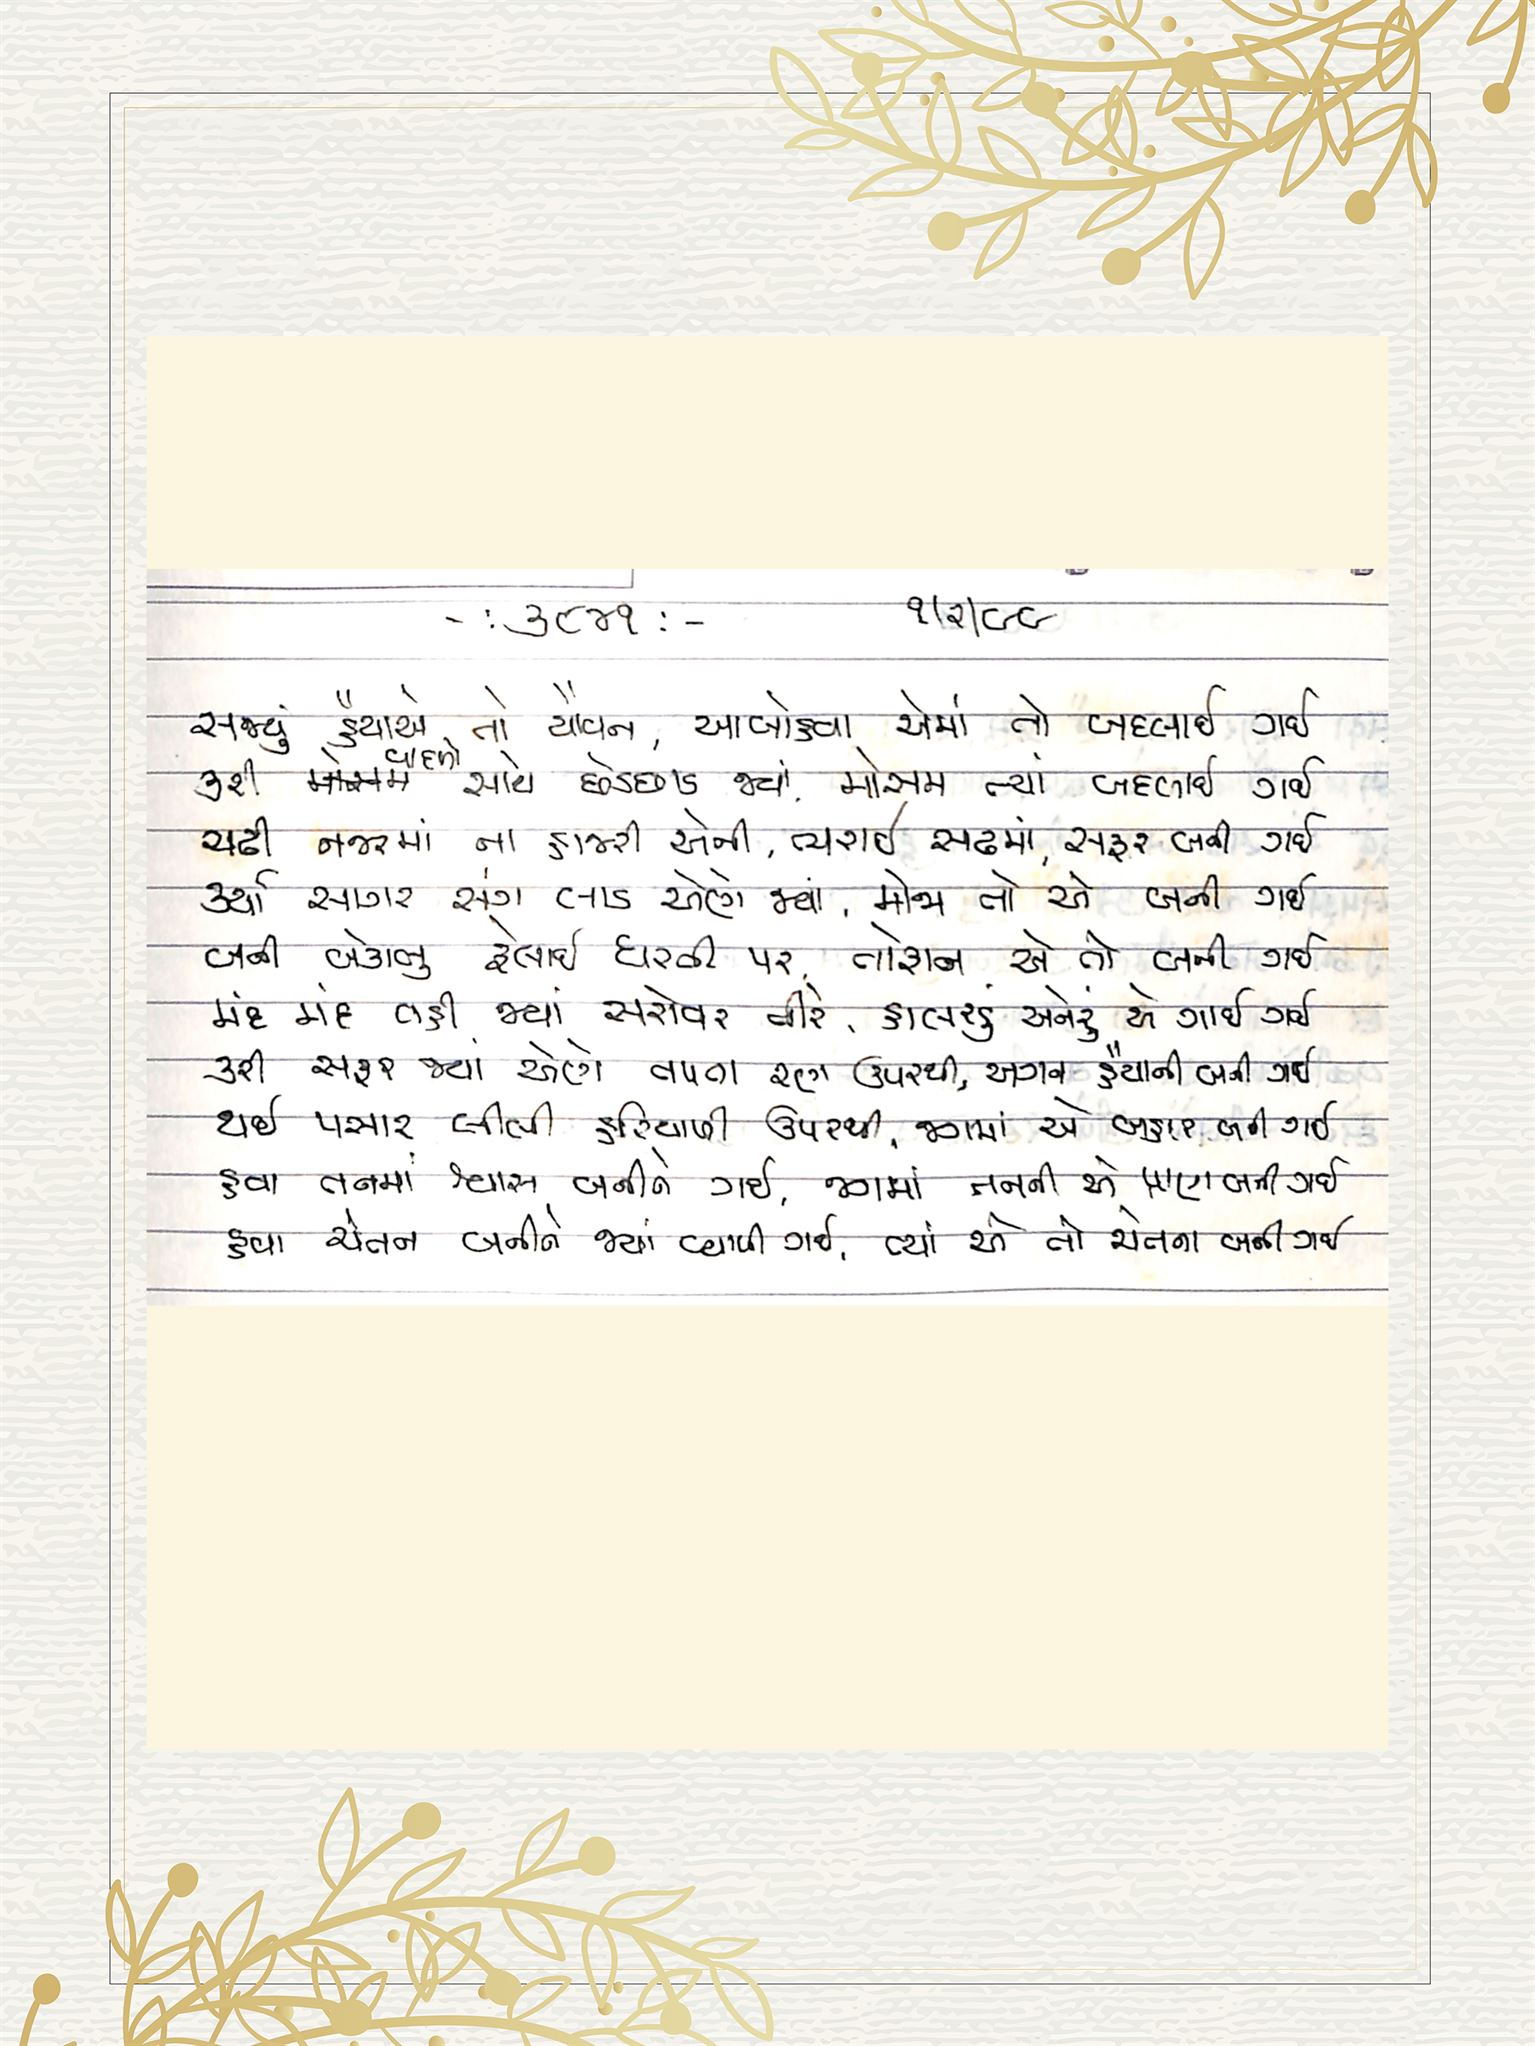 -: ૩૯૪૧ :- ૧/૨/૯૯
સજ્યું હૈયાએ તો યૌવન, આબોહવા એમાં તો બદલાઈ ગઈ
કરી વાદળો સાથે છેડછાડ જ્યાં, મોસમ ત્યાં બદલાઈ ગઈ
ચઢી નજરમાં ના હાજરી એની, ભરાઈ સઢમાં, સફર બની ગઈ
કર્યા સાગર સંગ લાડ એણે જ્યાં, મોજા તો એ બની ગઈ
બની બેકાબુ ફેલાઈ ધરતી પર, તોફાન એ તો બની ગઈ
મંદ મંદ વહી જ્યાં સરોવર તીરે, હાલરડું અનેરું એ ગાઈ ગઈ
કરી સફર જ્યાં એણે તપતા રણ ઉપરથી, અગન હૈયાની બની ગઈ
થઈ પસાર લીલી હરિયાળી ઉપરથી, જગમાં એ બહાર બની ગઈ
હવા તનમાં શ્વાસ બનીને ગઈ, જગમાં તનની એ પ્રાણ બની ગઈ
હવા ચેતન બનીને જ્યાં વ્યાપી ગઈ, ત્યાં એ તો ચેતના બની ગઈ